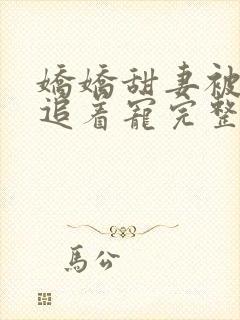 嬌嬌甜妻被
追着寵完整
馬公